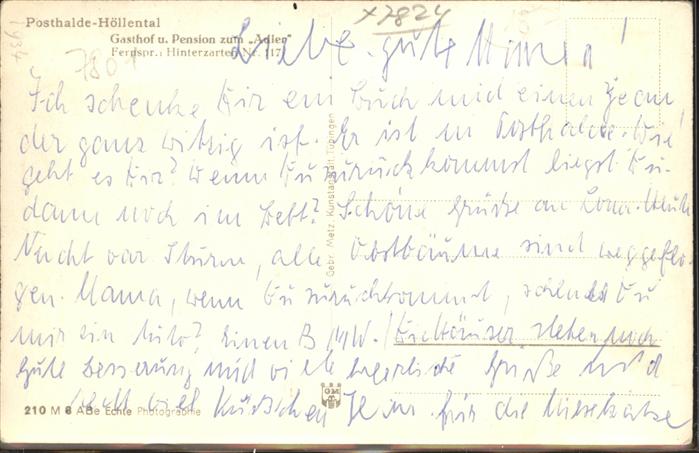 1934
x7824
7801
Posthalde-Höllental
Gasthof u. Pension zum „Adler"
Fernspr.: Hinterzarten Nr. 117
Liebe gute Mama!
Ich schenke Dir ein Buch und einen
der ganz witzig ist. Er ist in Posthalde. Wie
geht es Dir? Wenn Du zurückkommst liegst Du
dann noch im Bett? Schöne Grüße an Heute
Nacht war Sturm, alle Obstbäume sind weggeflo-
gen. Mama, wenn Du zurückkommst, schenkst Du
mir ein Auto? Einen B M W. / Die Häuser stehen noch
Gute Besserung und viele herzliche Grüße und
recht viel Küsschen Heiner für die
Gebr. Metz, Kunstanstalt, Tübingen
GMT
210 M 8 A Be Echte Photographie